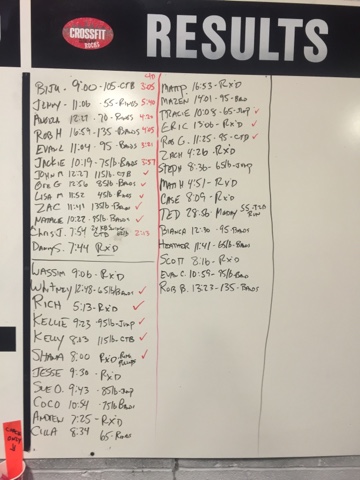 CROSSFIT
ROCKS
RESULTS
BIJU 9:00-105-CTB 3:05
JENNY - 11:06 - 55-RINGS 5:40
ANGELA 12:27 70 - RINGS 4:20
ROB H 16:59-135-BANDS 4:25
EVAN L 11:04 - 95 BANDS 3:21
JACKIE 10:19-75lb BANDS 3:57
JOHN M 12:27 115lb CTB ✓
12:56 85lb BANDS ✓
LISA M 11:52 45lb RINGS ✓
ZAC 11:41 135lb BANDS ✓
NATALIE 10:22 75lb BANDS ✓
CHRIS J. 7:54 CTB 2:13
DANNY S. 7:44 RX'D
WASSIM 9:06-RX'D
WHITNEY 12:48-65lb BANDS ✓
RICH 5:13-RX'D ✓
KELLIE 9:23 95lb-JUMP ✓
KELLY 8:03 115lb-CTB ✓
SHANA 8:00 RX'D ✓
JESSE 9:30 - RX'D
SUE O. 9:43 - 85lb-JUMP
COCO 10:54 - 75lb BANDS
ANDREW 7:25 - RX'D
CILLA 8:34 65-RINGS
MATT P. 16:53-RX'D
MAZEN 14:01-95-BAND
TRACIE 10:08-65-JUMP ✓
ERIC 13:06-RX'D ✓
ROB G. 11:25-95-CTB ✓
ZACH 4:26-RX'D
STEPH 8:36-65lb-JUMP
MATT H 4:51-RX'D
CASE 8:09-RX'D
TED 28:56 MURPH RUN
BIANCA 12:30 95 BANDS
HEATHER 11:41-65lb BANDS
SCOTT 8:16-RX'D
EVAN C. 10:59-95lb BAND
ROB B. 13:22-135-BANDS